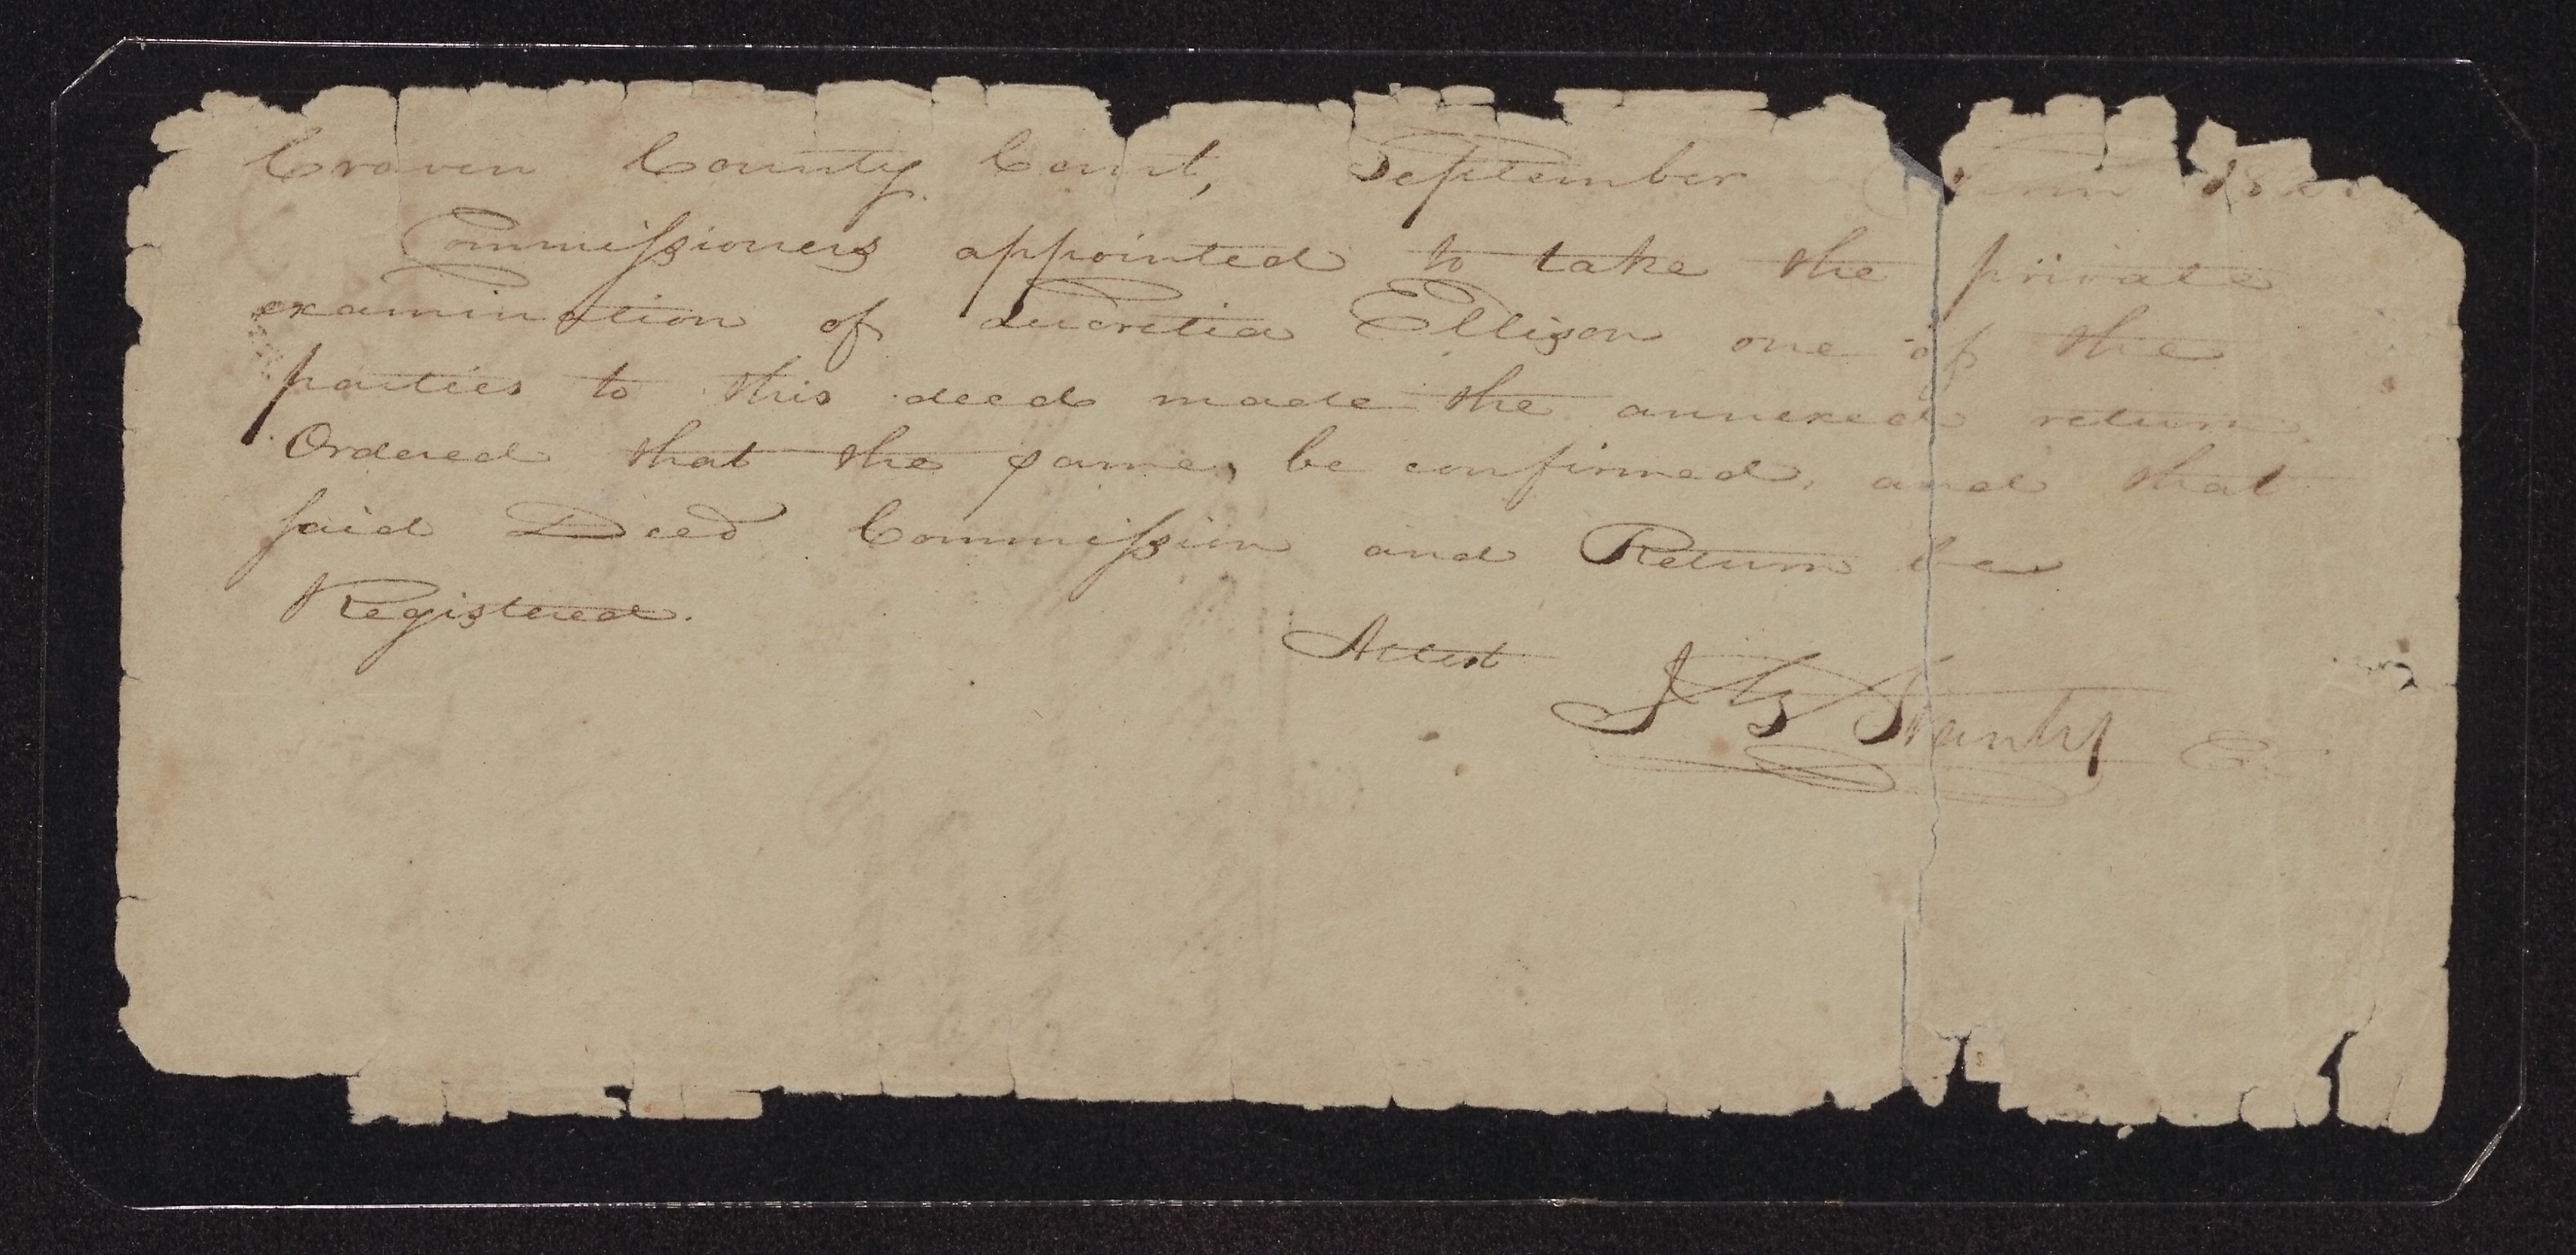 Craven County Court, September Term 18
Commissioners appointed to take the private
examination of Lucretia Ellison one of the
parties to this deed made the annexed return.
Ordered that the same, be confirmed, and that
said Deed Commission and Return be
Registered.
Attest
J G Stanly C